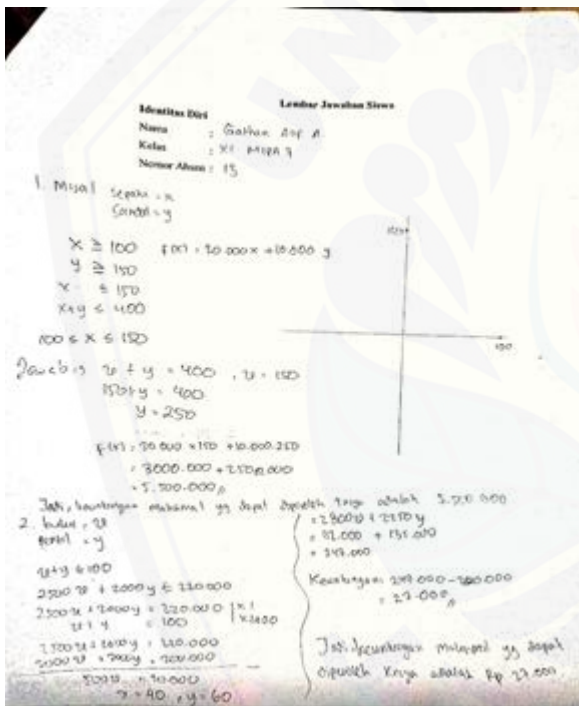 Lembar Jawaban Siswa
Identitas Diri
Nama :
Kelas : XI MIPA 7
Nomor Absen : 15
1. Misal sepatu = x
Sandal = y
x ≥ 100 f(x) = 20.000x + 10.000 y
y ≥ 150
x ≤ 150
x+y ≤ 400
100 ≤ x ≤ 150
150
Jawab : x + y = 400 , x = 150
150+y = 400
y = 250
f(x) = 20.000 × 150 + 10.000.250
= 3000.000 + 2500.000
= 5.500.000
Jadi, keuntungan maksimal yg dapat diperoleh adalah 5.500.000
2. buku = x
pensil = y
x+y ≤ 100
2500 x + 2000 y ≤ 220.000
2500 x + 2000 y = 220.000 | x 1
x + y = 100
2500 x + 2000 y = 220.000
2000 x + 2000 y = 200.000
500 x = 20.000
x = 40 , y = 60
= 2800 x + 2250 y
= 135.000
= 247.000
Keuntungan: 247.000 - 220.000
= 27.000
Jadi, keuntungan maksimal yg dapat
diperoleh adalah Rp 27.000